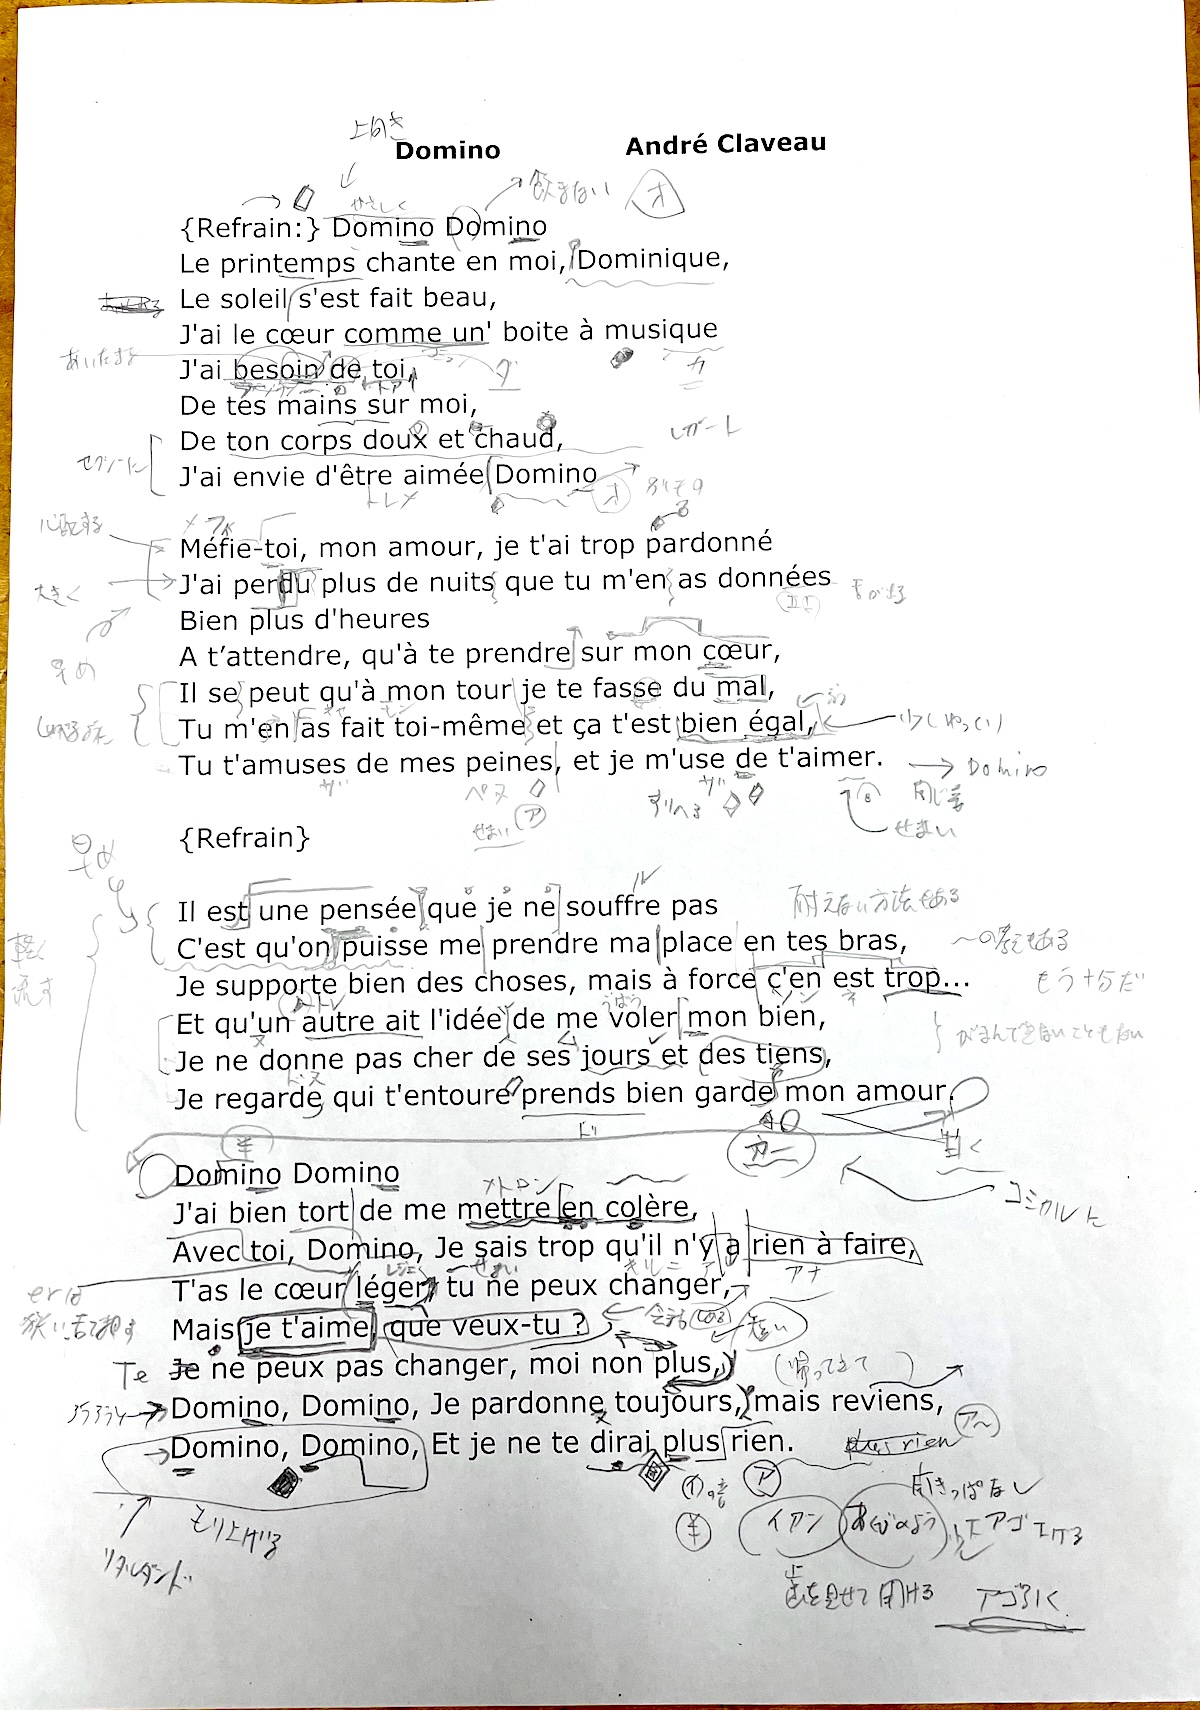 上向き
Domino André Claveau
飲まない オ
やさしく
{Refrain:} Domino Domino
Le printemps chante en moi, Dominique,
Le soleil s'est fait beau,
J'ai le cœur comme un' boite à musique
J'ai besoin de toi,
De tes mains sur moi,
De ton corps doux et chaud,
レガート
J'ai envie d'être aimée Domino
トレメ オ
心配する
Méfie-toi, mon amour, je t'ai trop pardonné
J'ai perdu plus de nuits que tu m'en as données
大きく
Bien plus d'heures
早め
A t’attendre, qu'à te prendre sur mon cœur,
Il se peut qu'à mon tour je te fasse du mal,
Tu m'en as fait toi-même et ça t'est bien égal,
Tu t'amuses de mes peines, et je m'use de t'aimer. → Domino
ザ ペヌ ザ
せまい ア すりへる せまい
{Refrain}
早め
Il est une pensée que je ne souffre pas
耐えない方法もある
C'est qu'on puisse me prendre ma place en tes bras,
軽く
流す
Je supporte bien des choses, mais à force c'en est trop...
もう十分だ
Et qu'un autre ait l'idée de me voler mon bien,
がまんできないこともない
Je ne donne pas cher de ses jours et des tiens,
Je regarde qui t'entoure prends bien garde mon amour.
甘く
ガー
Domino Domino
コミカルに
メトロン
J'ai bien tort de me mettre en colère,
Avec toi, Domino, Je sais trop qu'il n'y a rien à faire,
レジェ せまい アナ
T'as le cœur léger, tu ne peux changer,
erは
狭い
Mais je t'aime, que veux-tu ?
会話 短い
Te Je ne peux pas changer, moi non plus,
(帰ってきて)
Domino, Domino, Je pardonne toujours, mais reviens,
ア〜
Domino, Domino, Et je ne te dirai plus rien.
plus rien
オの音 ア
開きっぱなし
もり上げる
リタルダンド
イアン あくびのよう アゴ下げる
上
歯を見せて開ける
アゴ引く